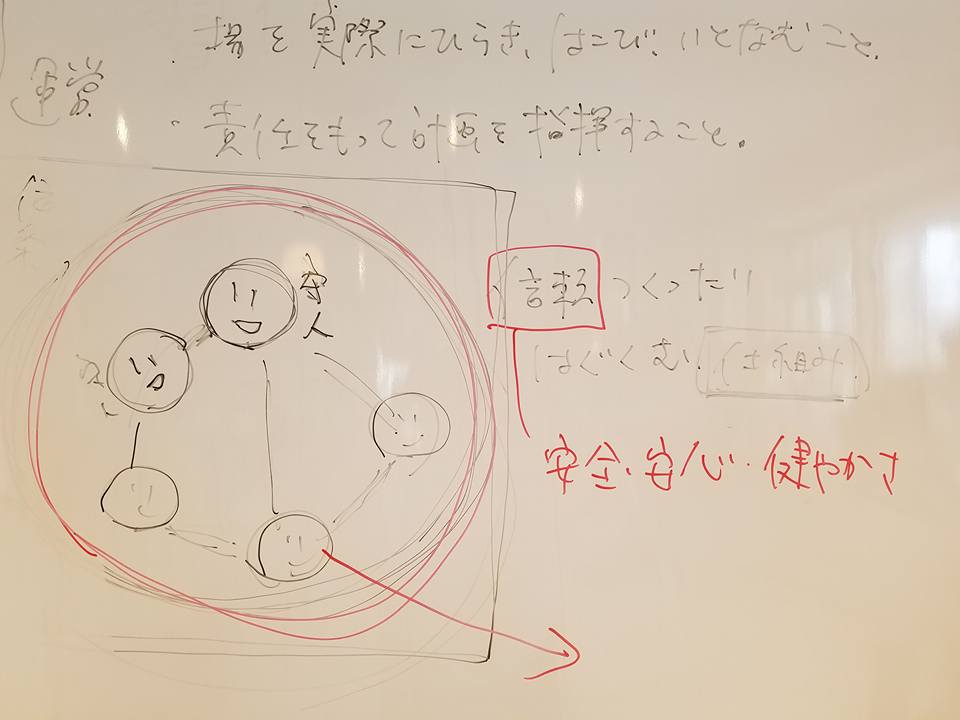 場を実際にひらき、はこび、いとなむこと。
運営
・責任をもって計画を指揮すること。
守人
信頼 つくったり
はぐくむ、(仕組み)
安全・安心・健やかさ